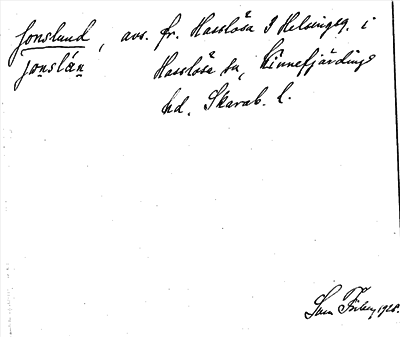 Jonslund, avs. fr. Hasslösa 9 Helsingeg. i
jonslán Hasslösa sn, Kinnefjärdings
hd. Skarab. l.
1928.